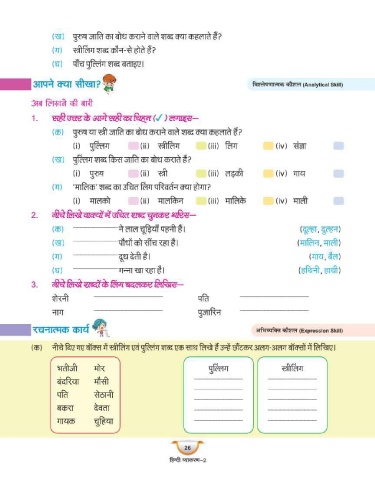 (ख) पुरुष जाति का बोध कराने वाले शब्द क्या कहलाते हैं?
(ग) स्त्रीलिंग शब्द कौन-से होते हैं?
(घ) पाँच पुल्लिंग शब्द बताइए।
आपने क्या सीखा? विश्लेषणात्मक कौशल (Analytical Skill)
अब लिखने की बारी
1. सही उत्तर के आगे सही का चिह्न (✓) लगाइए—
(क) पुरुष या स्त्री जाति का बोध कराने वाले शब्द क्या कहलाते हैं?
(i) पुल्लिंग (ii) स्त्रीलिंग (iii) लिंग (iv) संज्ञा
(ख) पुल्लिंग शब्द किस जाति का बोध कराते हैं?
(i) पुरुष (ii) स्त्री (iii) लड़की (iv) गाय
(ग) 'मालिक' शब्द का उचित लिंग परिवर्तन क्या होगा?
(i) मालको (ii) मालकिन (iii) मालिके (iv) माली
2. नीचे लिखे वाक्यों में उचित शब्द चुनकर भरिए—
(क) ने लाल चूड़ियाँ पहनी हैं। (दूल्हा, दुल्हन)
(ख) पौधों को सींच रहा है। (मालिन, माली)
(ग) दूध देती है। (गाय, बैल)
(घ) गन्ना खा रहा है। (हथिनी, हाथी)
3. नीचे लिखे शब्दों के लिंग बदलकर लिखिए—
शेरनी पति
नाग पुजारिन
रचनात्मक कार्य अभिव्यक्ति कौशल (Expression Skill)
(क) नीचे दिए गए बॉक्स में स्त्रीलिंग एवं पुल्लिंग शब्द एक साथ लिखे हैं उन्हें छाँटकर अलग-अलग बॉक्सों में लिखिए।
भतीजी मोर पुल्लिंग स्त्रीलिंग
बंदरिया मौसी
पति सेठानी
बकरा देवता
गायक चुहिया
26
हिन्दी व्याकरण–2